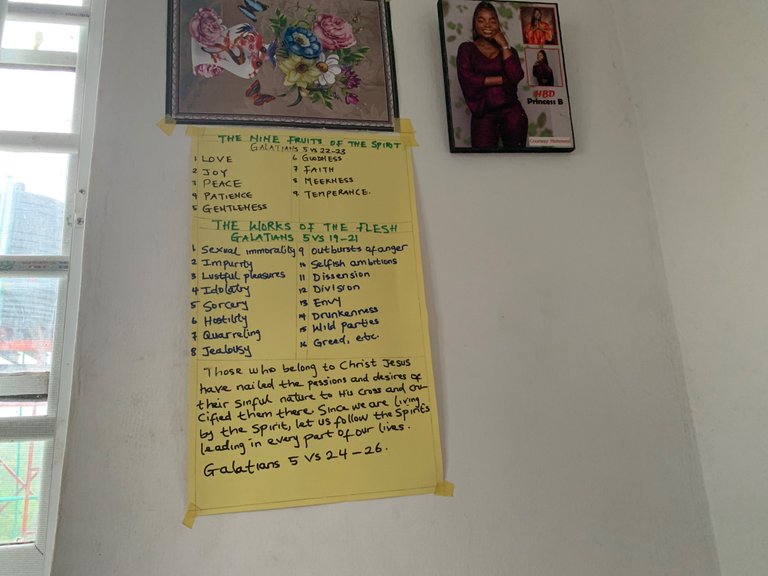 THE NINE FRUITS OF THE SPIRIT
GALATIANS 5 VS 22-23
1 LOVE
2 JOY
3 PEACE
4 PATIENCE
5 GENTLENESS
6 GOODNESS
7 FAITH
8 MEEKNESS
9 TEMPERANCE.
THE WORKS OF THE FLESH
GALATIANS 5 VS 19-21
1 Sexual immorality
2 Impurity
3 Lustful pleasures
4 Idolatry
5 Sorcery
6 Hostility
7 Quarreling
8 Jealousy
9 outbursts of anger
10 Selfish ambitions
11 Dissension
12 Division
13 Envy
14 Drunkenness
15 Wild parties
16 Greed, etc.
Those who belong to Christ Jesus
have nailed the passions and desires of
their sinful nature to His cross and cru-
cified them there. Since we are living
by the Spirit, let us follow the Spirit's
leading in every part of our lives.
Galatians 5 VS 24-26.
HBD
Princess B